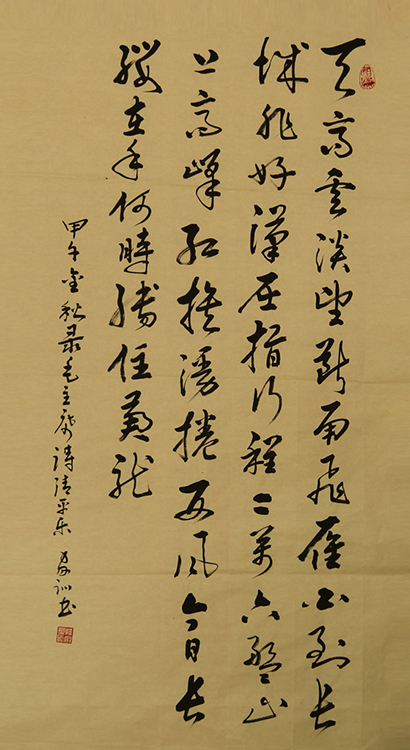 天高雲淡望断南飛雁不到长
城非好漢屈指行程二萬六盤山
上高峰红旗漫捲西风今日长
缨在手何時缚住蒼龙
甲午金秋录毛主席詩清平乐 训书